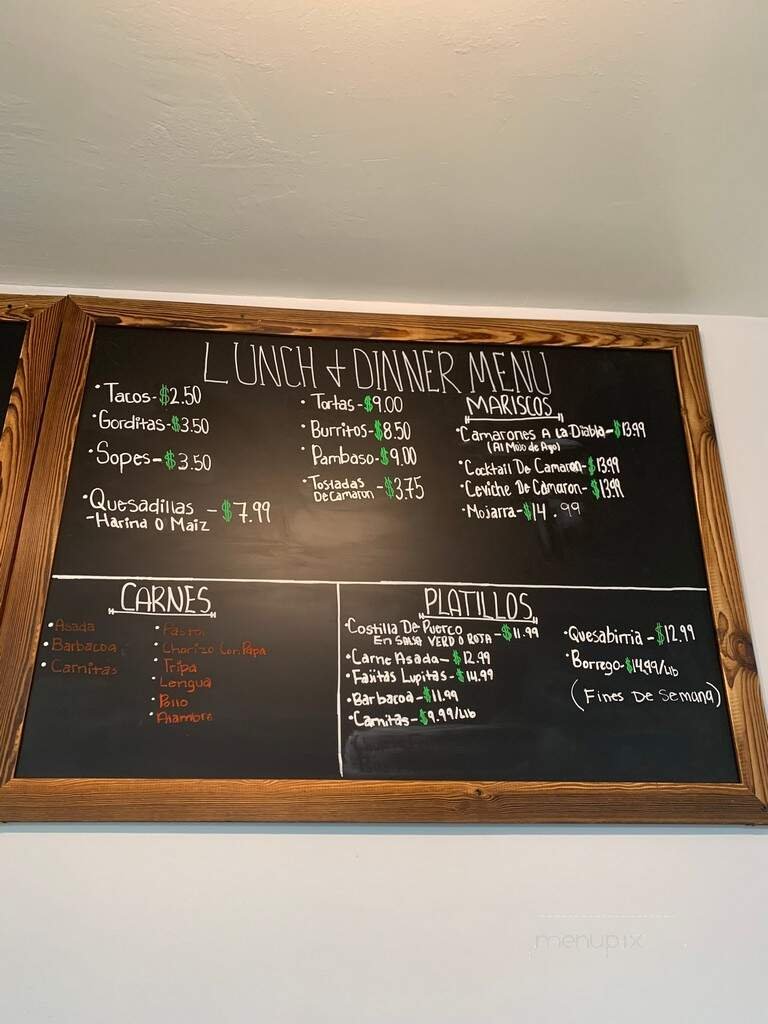 LUNCH & DINNER MENU
• Tacos - $2.50
• Gorditas - $3.50
• Sopes - $3.50
• Quesadillas - $7.99
- Harina O Maiz
• Tortas - $9.00
• Burritos - $8.50
• Pambaso - $9.00
• Tostadas
De Camaron - $3.75
MARISCOS
• Camarones A La Diabla - $13.99
(Al Mojo de Ajo)
• Cocktail De Camaron - $13.99
• Ceviche De Camaron - $13.99
• Mojarra - $14.99
CARNES
• Asada
• Barbacoa
• Carnitas
• Pastor
• Chorizo Con Papa
• Tripa
• Lengua
• Pollo
• Alambre
PLATILLOS
• Costilla De Puerco
En Salsa VERD O ROJA - $11.99
• Carne Asada - $12.99
• Fajitas Lupitas - $14.99
• Barbacoa - $11.99
• Carnitas - $9.99/Lib
• Quesabirria - $12.99
• Borrego - $14.99/Lib
(Fines De Semana)
menupix